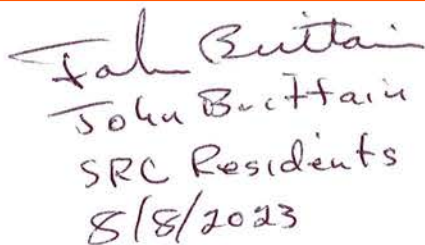 John Brittain
John Brittain
SRC Residents
8/8/2023